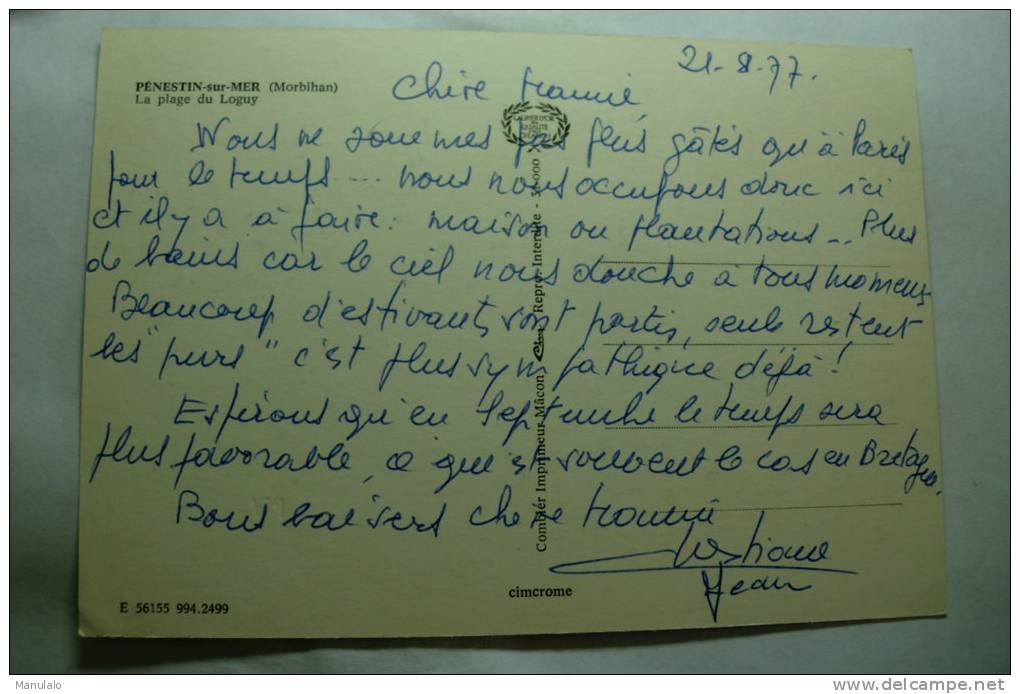 21-8-77.
PÉNESTIN-sur-MER (Morbihan)
La plage du Loguy
Chère
Nous ne sommes pas plus gâtés qu'à Paris
pour le temps ... nous nous occupons donc ici
et il y a à faire : maison ou plantations ... Plus
de bains car le ciel nous douche à tous moments
Beaucoup d'estivants sont partis, seuls restent
les "purs" c'est plus sympathique déjà !
Espérons qu'en Septembre le temps sera
plus favorable, ce qui est souvent le cas en Bretagne.
Bons baisers chère
Jean
Combier Imprimeur Mâcon Cim Repro. Interdite - 
cimcrome
E 56155 994.2499
Manulalo
www.delcampe.net